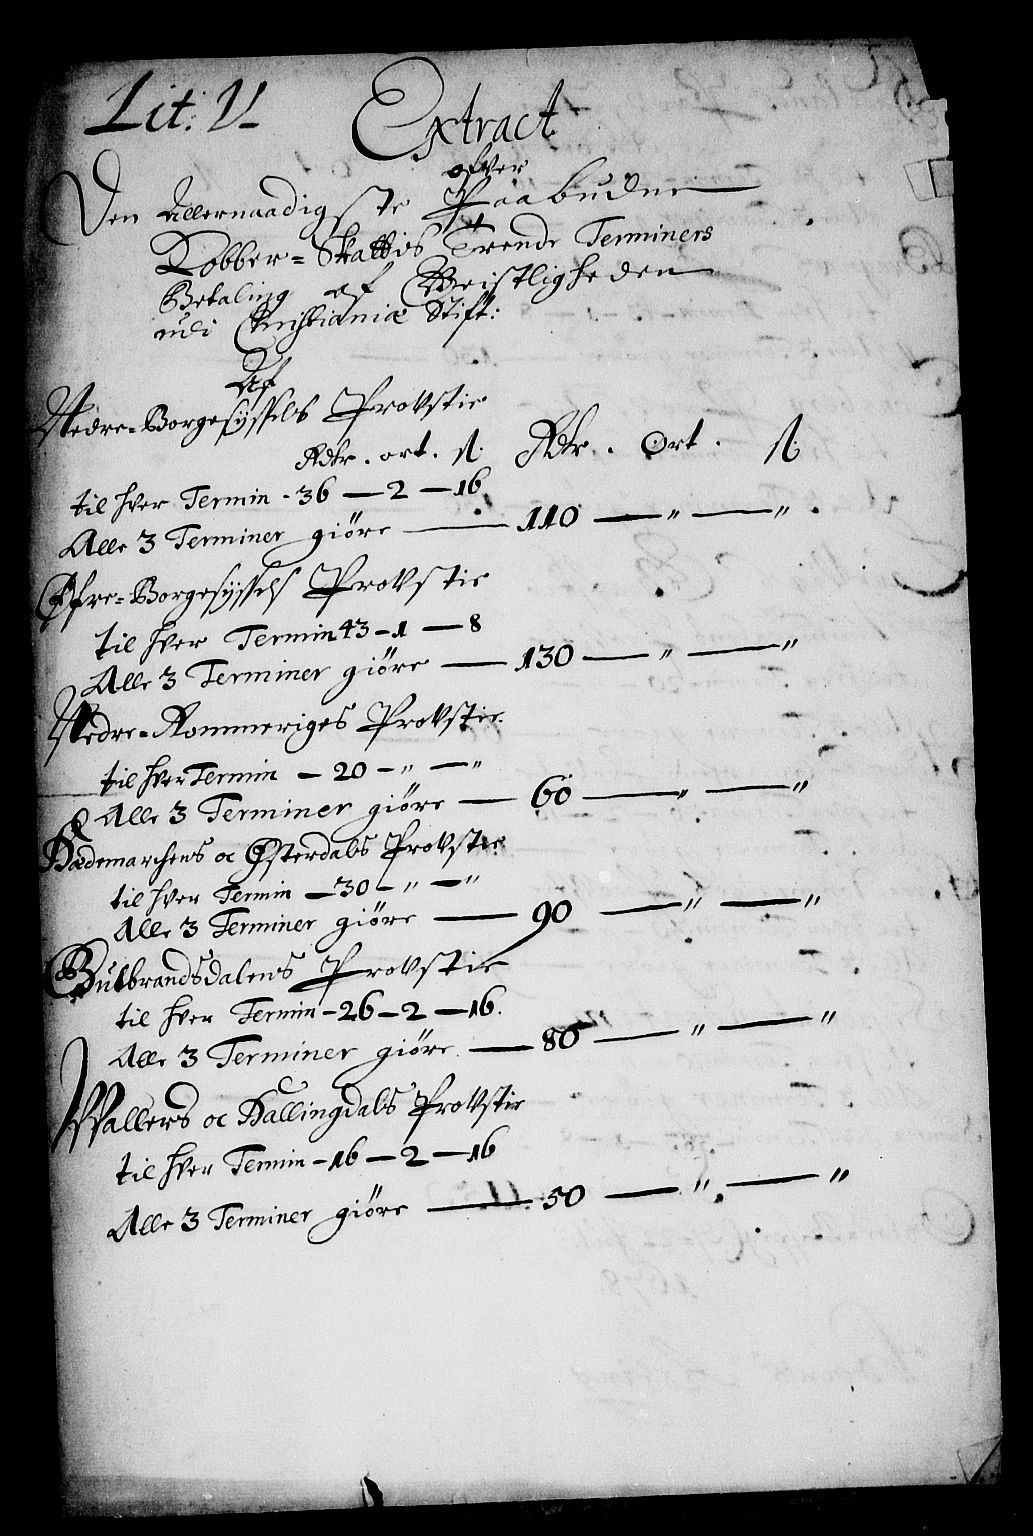 Lit: V
Extract
ofver
Den Allernaadigste Paabudne
Kobber-Skattis Trende Terminers
Betaling af Geistligheden
udi Christianiæ Stift:
Af
Nedre-Borgesyssels Provstie
Rdlr. ort. sl. Rdlr. Ort. sl.
til hver Termin - 36 — 2 — 16
Alle 3 Terminer giöre — 110 — " — "
Öfre-Borgesyssels Provstie
til hver Termin 43 - 1 — 8
Alle 3 Terminer giöre — 130 — " — "
Nedre-Rommeriges Provstie
til hver Termin — 20 - " — "
Alle 3 Terminer giöre — 60 — " — "
Hædemarchens oc Østerdals Provstie
til hver Termin — 30 - " — "
Alle 3 Terminer giöre — 90 — " — "
Gulbrandsdalens Provstie
til hver Termin - 26 - 2 — 16.
Alle 3 Terminer giöre — 80 — " — "
Wallers oc Hallingdals Provstie
til hver Termin - 16 — 2 — 16
Alle 3 Terminer giöre — 50 — " — "